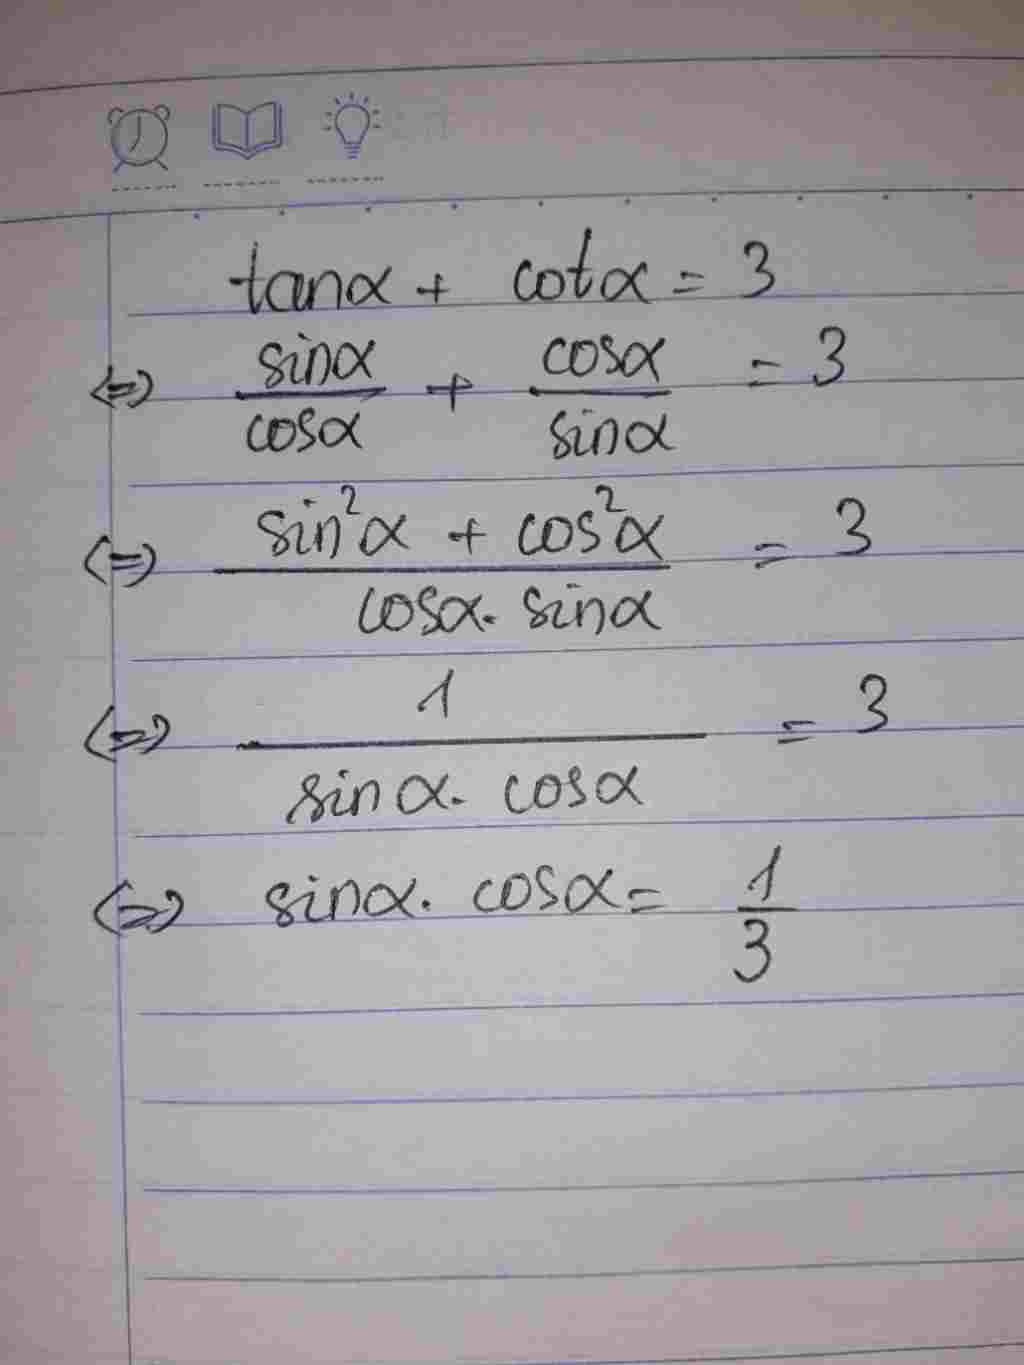 tanα + cotα = 3
(=) sinα/cosα + cosα/sinα = 3
(=) (sin²α + cos²α)/(cosα. sinα) = 3
(=) 1/(sinα. cosα) = 3
(=) sinα. cosα = 1/3